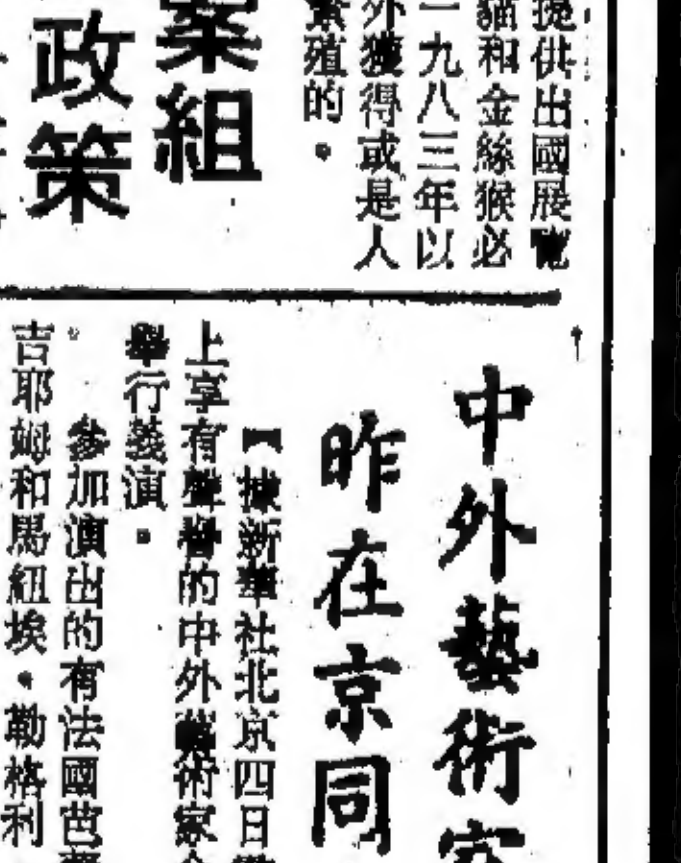 提供出國展覽
貓和金絲猴必
一九八三年以
外獲得或是人
繁殖的。
案組
政策
中外藝術家
昨在京同
【據新華社北京四日
上享有聲譽的中外藝術家
舉行義演。
參加演出的有法國芭
吉耶姆和馬紐埃·勒格利